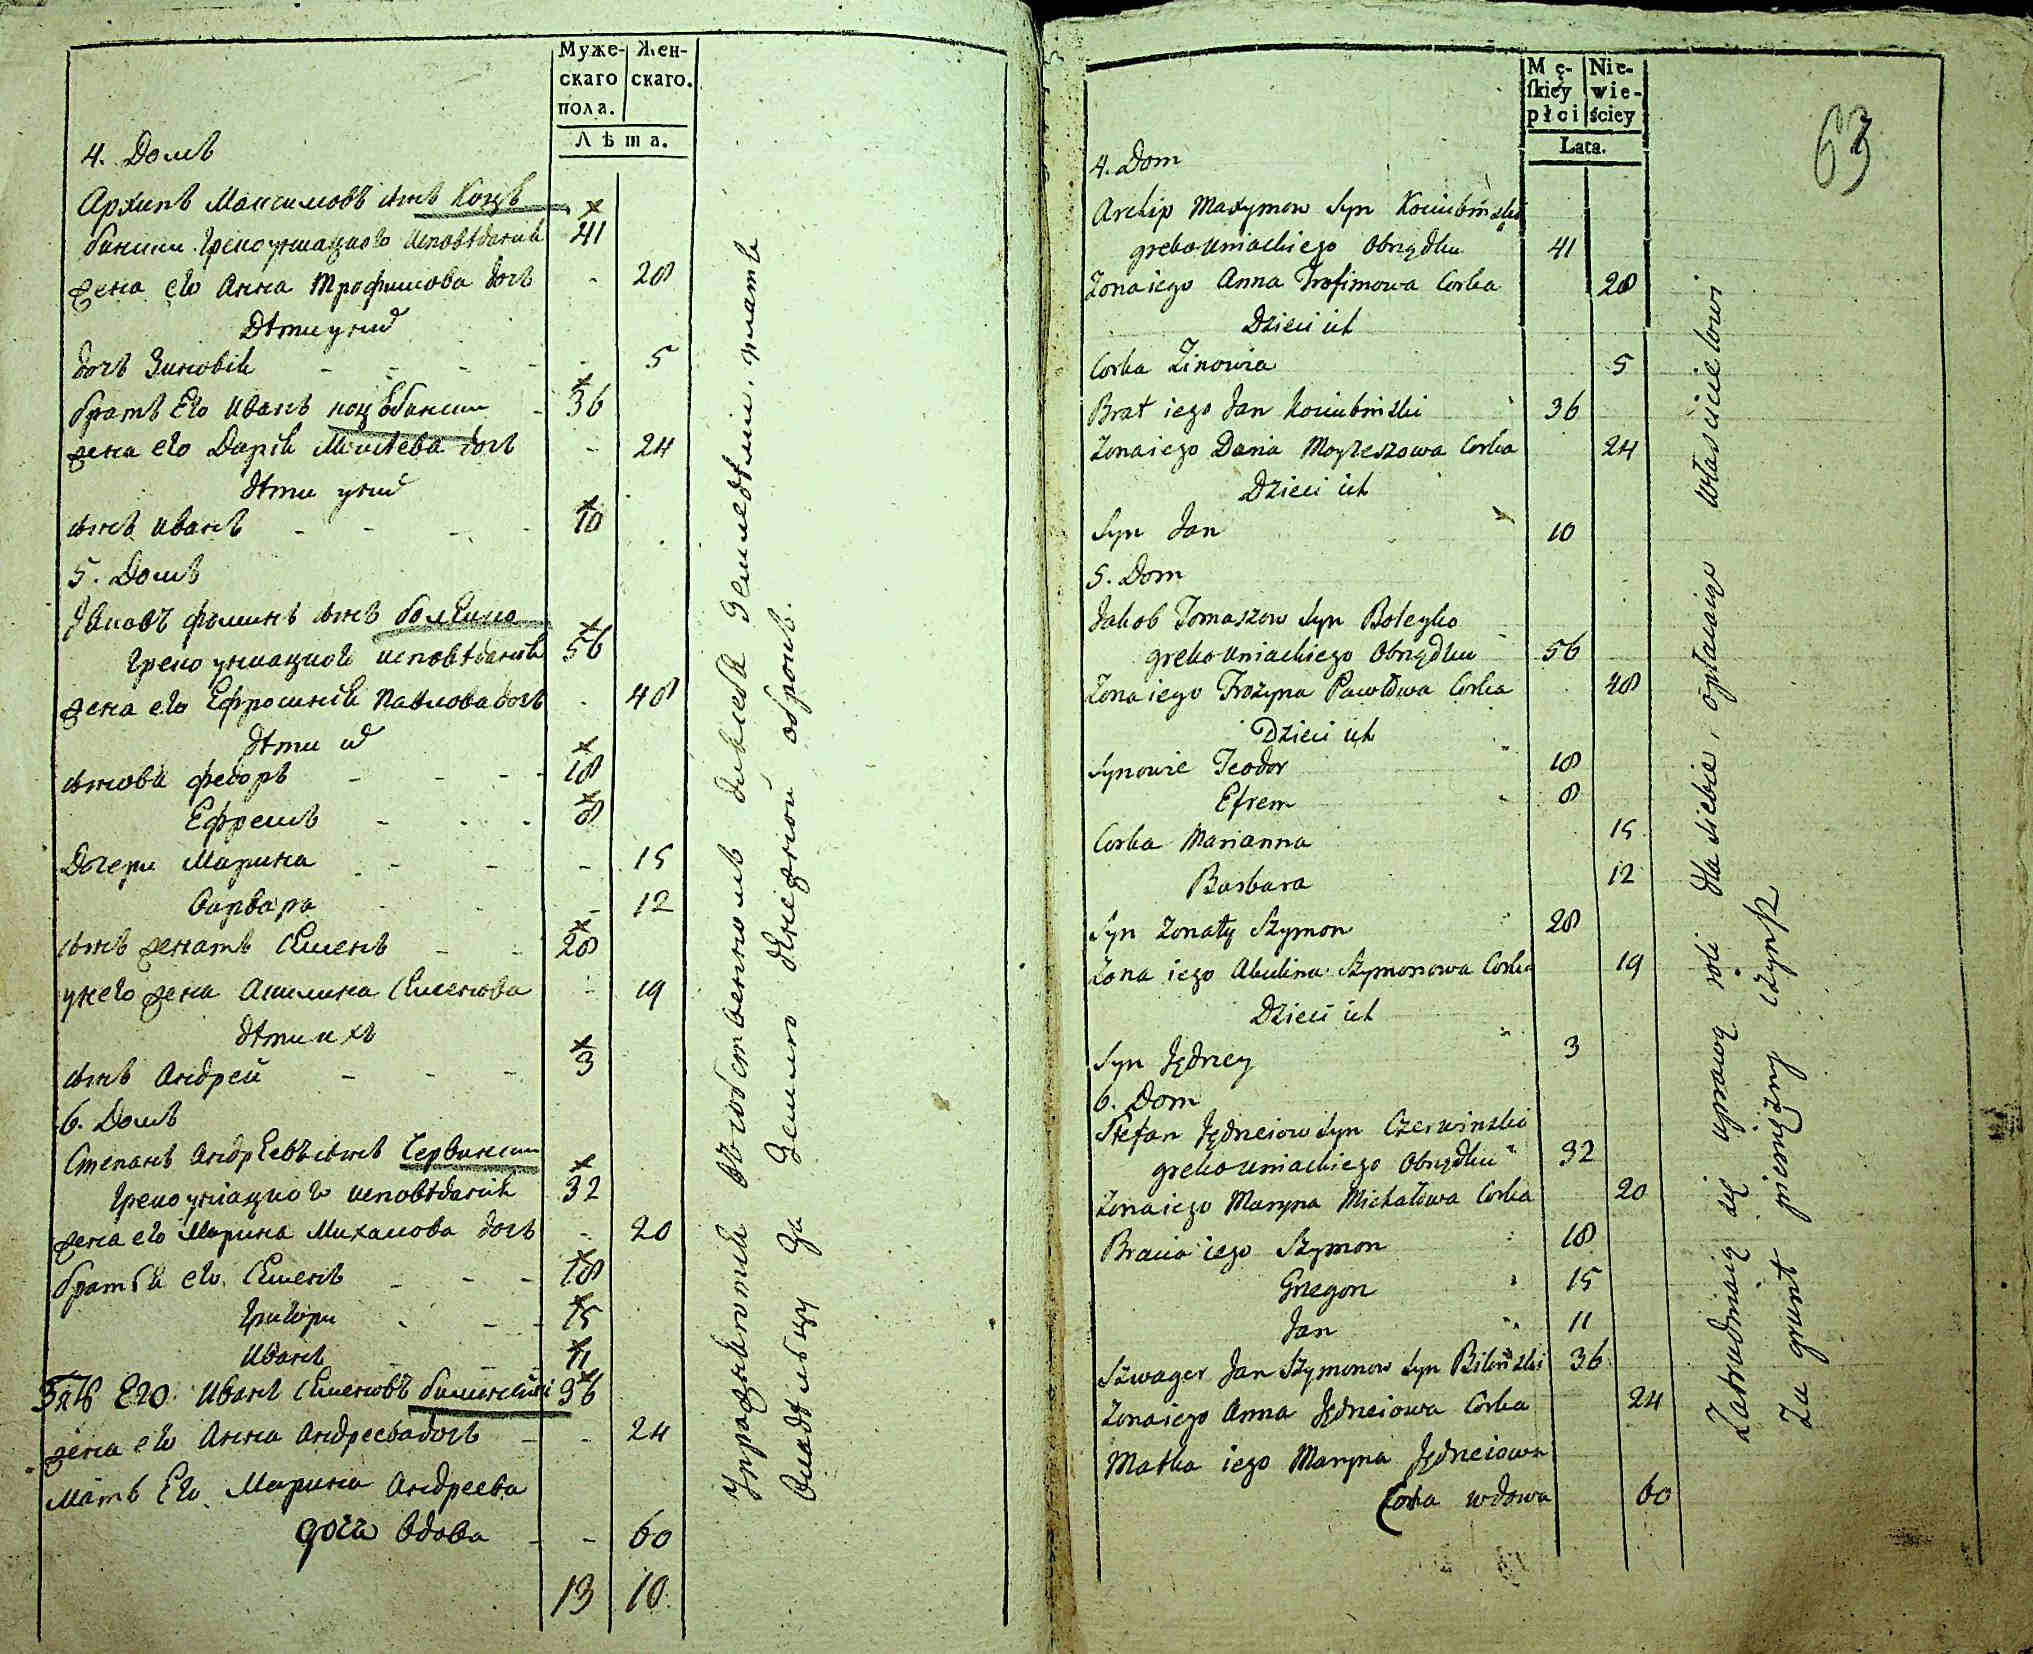 Муже-
скаго
пола.
Жен-
скаго.
Лѣта.
4. Домъ
Архипъ Максимовъ сынъ Коцю
бински Грекоуниацкого исповѣданія 41
жена его Анна Трофимова дочь - 28
Дѣти у них
дочь Зиновія - - - - - 5
братъ Его Иванъ коцюбински - 36
жена его Дарія Моисѣева дочь - 24
дѣти у них
сынъ Иванъ - - - - 10
5. Домъ
Яковъ фоминъ сынъ
Грекоуниацкого исповѣданія 56
жена его Ефросинія Павлова дочь - 48
дѣти их
сынови федоръ - - - - 18
Ефремъ - - - 8
Дочери Марина - - - 15
Варвара - - - 12
сынъ женатъ Семенъ - - 28
у него жена Акилина Семенова - 19
дѣти ихъ
сынъ Андрей - - - 3
6. Домъ
Степанъ Андреевъ сынъ Червински
Грекоуніацкого исповѣданія 32
жена его Марина Михалова дочь - 20
братья его Семенъ - - - 18
Григори - - - 15
Иванъ - - - 11
Зять Его Иванъ Семеновъ 36
жена его Анна Андреева дочь - - 24
мать Его Марина Андреева
дочь вдова - - 60
13 10
Упражняются земледѣлием, платя
Владѣльцу За Землю денежной оброкъ.
Mę-
ſkiey
płci
Nie-
wie-
ściey
Lata.
63
4. Dom
Archip Maxymow Syn Kociubinski
greko uniackiego Obrządku 41
Zona iego Anna Trofimowa Corka 28
Dzieci ich
Corka Zinowia 5
Brat iego Jan Kociubinski 36
Zona iego Daria Moyzeszowa Corka 24
Dzieci ich
Syn Jan 10
5. Dom
Jakob Tomaszow Syn Boleyko
greko uniackiego Obrządku 56
Zona iego Frozyna Pawłowa Corka 48
Dzieci ich
Synowie Teodor 18
Efrem 8
Corka Marianna 15
Barbara 12
Syn zonaty Szymon 28
Zona iego Akulina Szymonowa Corka 19
Dzieci ich
Syn Jędrzey 3
6. Dom
Stefan Jędrzeiow Syn Czerwinski
greko uniackiego Obrządku 32
Zona iego Maryna Michałowa Corka 20
Bracia iego Szymon 18
Grzegorz 15
Jan 11
Szwager Jan Szymonow Syn Bilinski 36
Zona iego Anna Jędrzeiowa Corka 24
Matka iego Maryna Jędrzeiowa
Corka wdowa 60
Zatrudniaią się uprawą roli dla siebie, opłacaiąc właścicielowi
Za grunt pieniężny czynsz